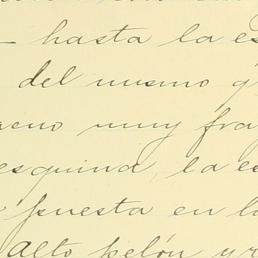 hasta la es
del mismo
reno muy fra
esquina, la es
puesta en la
alto pelón y